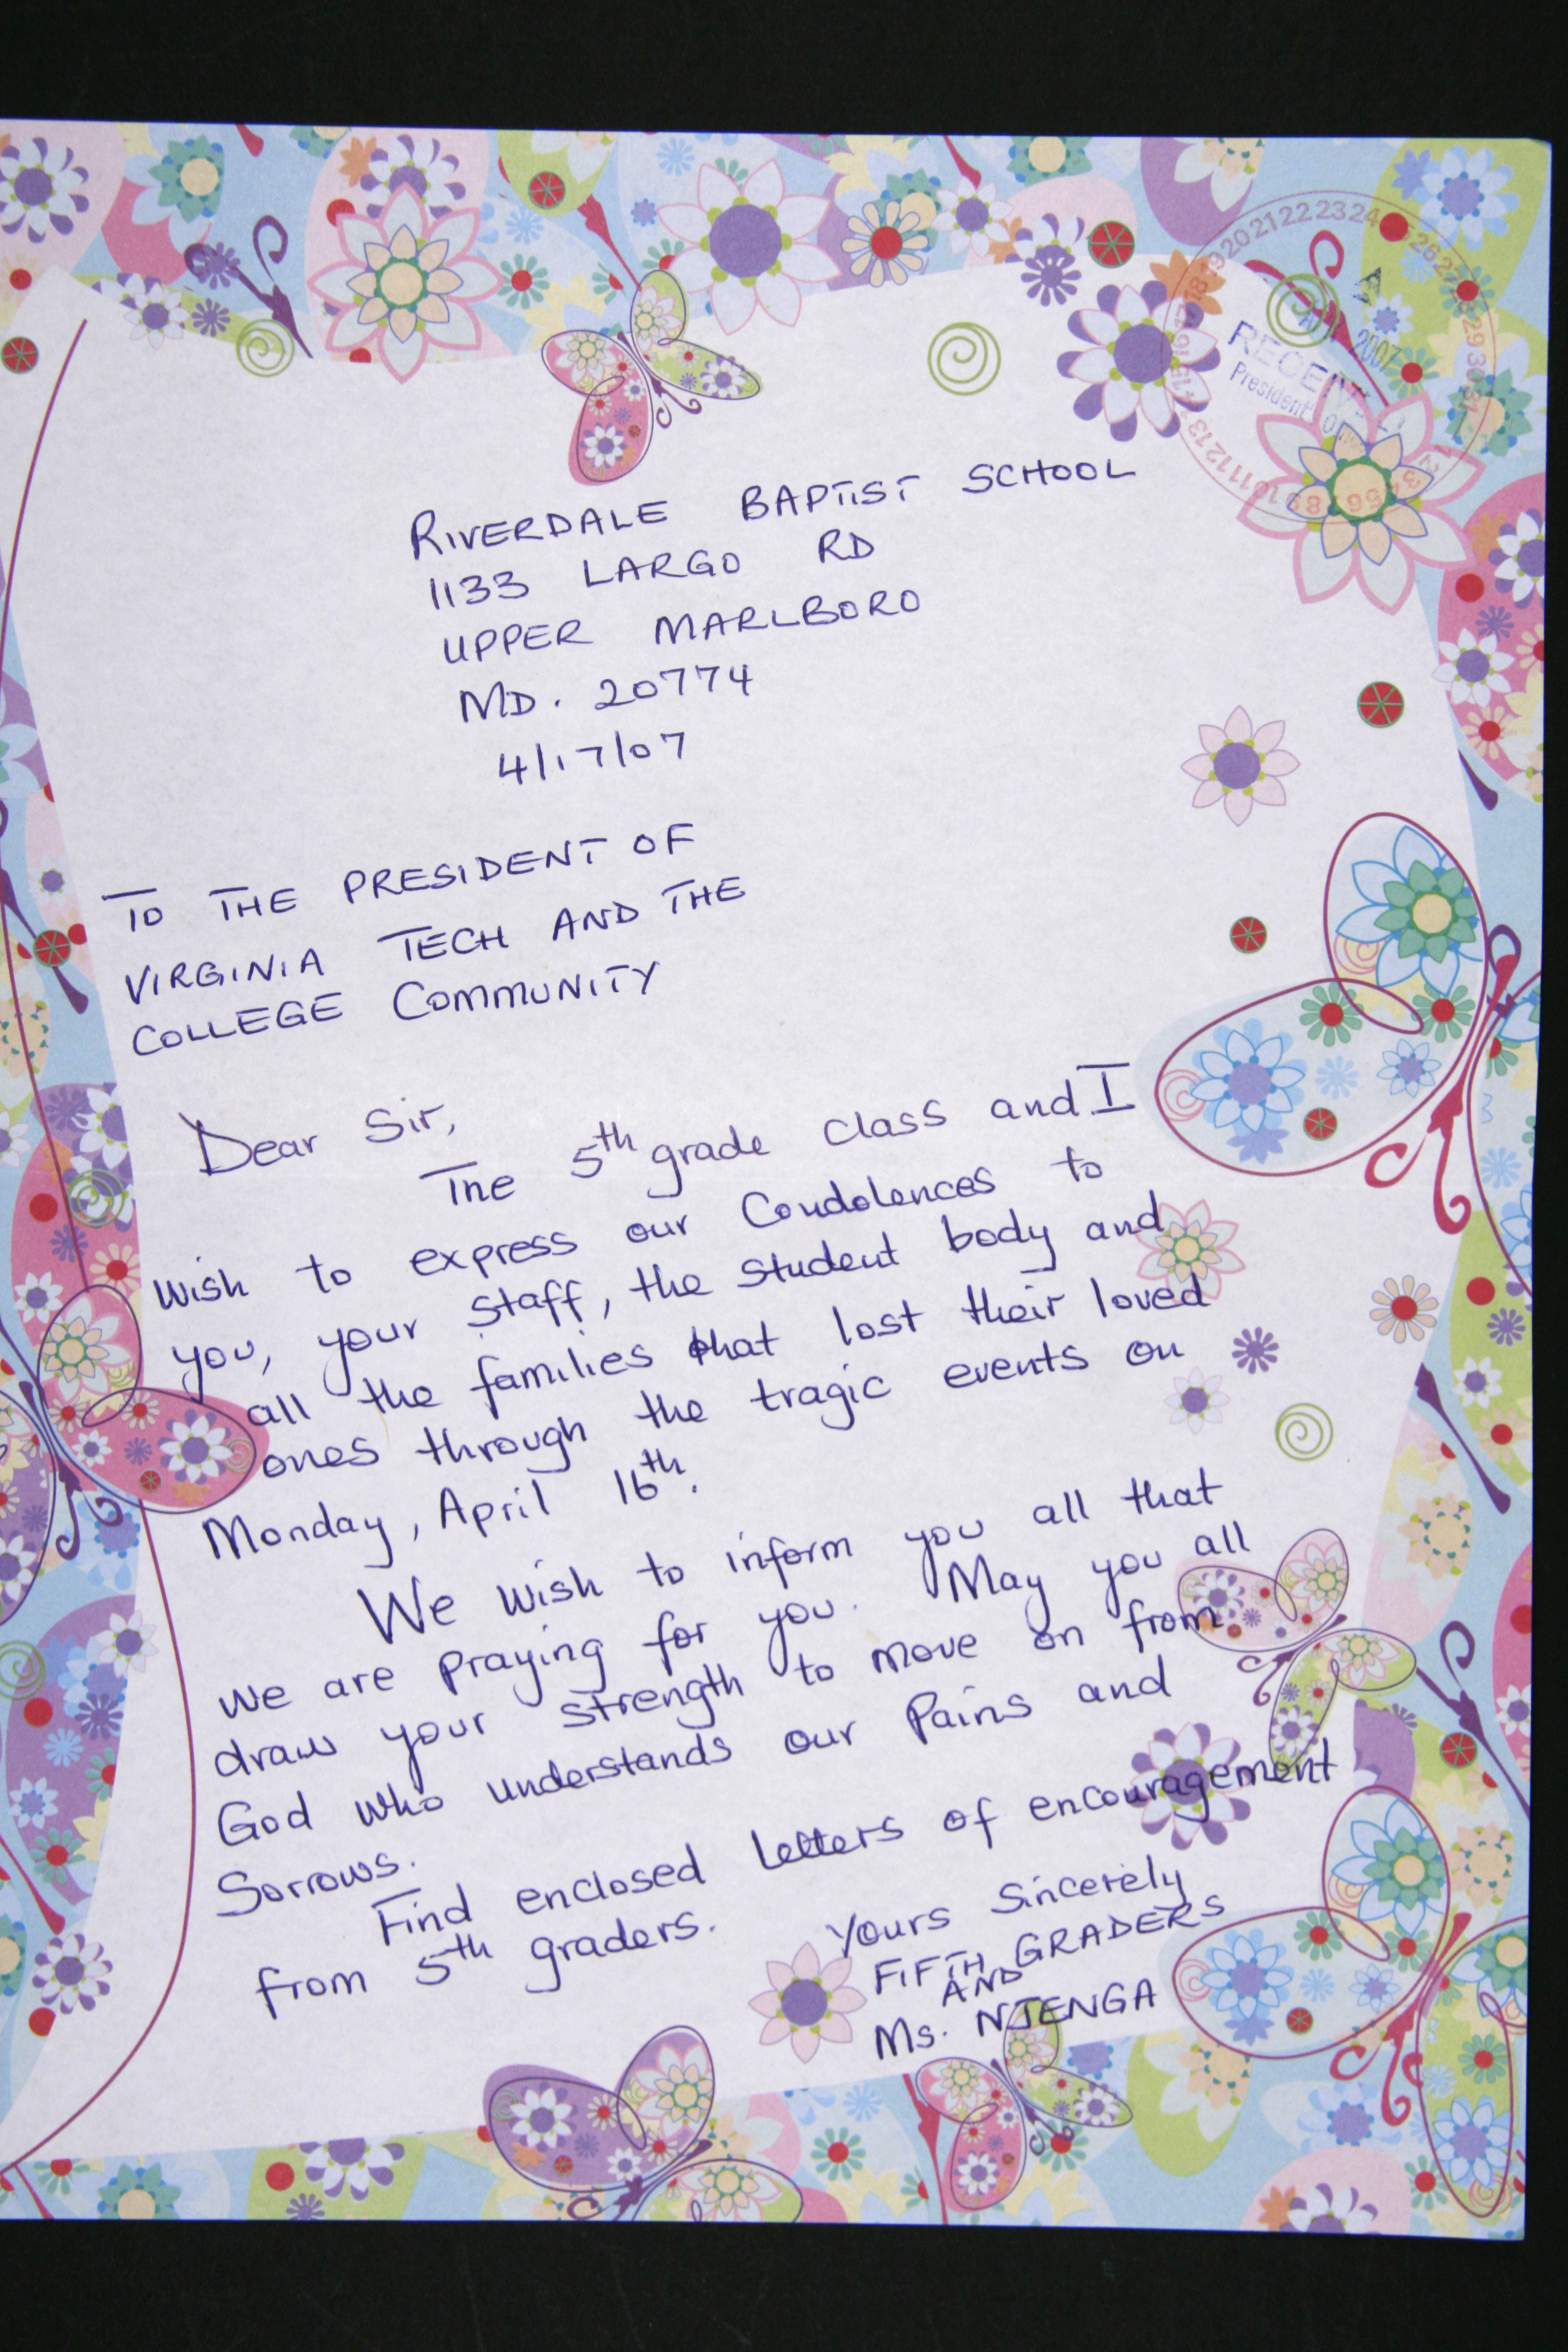 19 20 21 22 23 24
RECEIVED
2007
President
RIVERDALE BAPTIST SCHOOL
1133 LARGO RD
UPPER MARLBORO
MD. 20774
4/17/07
TO THE PRESIDENT OF
VIRGINIA TECH AND THE
COLLEGE COMMUNITY
Dear Sir,
The 5th grade class and I
wish to express our Condolences to
you, your staff, the student body and
all the families that lost their loved
ones through the tragic events on
Monday, April 16th.
We wish to inform you all that
we are praying for you. May you all
draw your strength to move on from
God who understands our Pains and
Sorrows.
Find enclosed letters of encouragement
from 5th graders.
Yours Sincerely
FIFTH GRADERS
AND
Ms. NJENGA